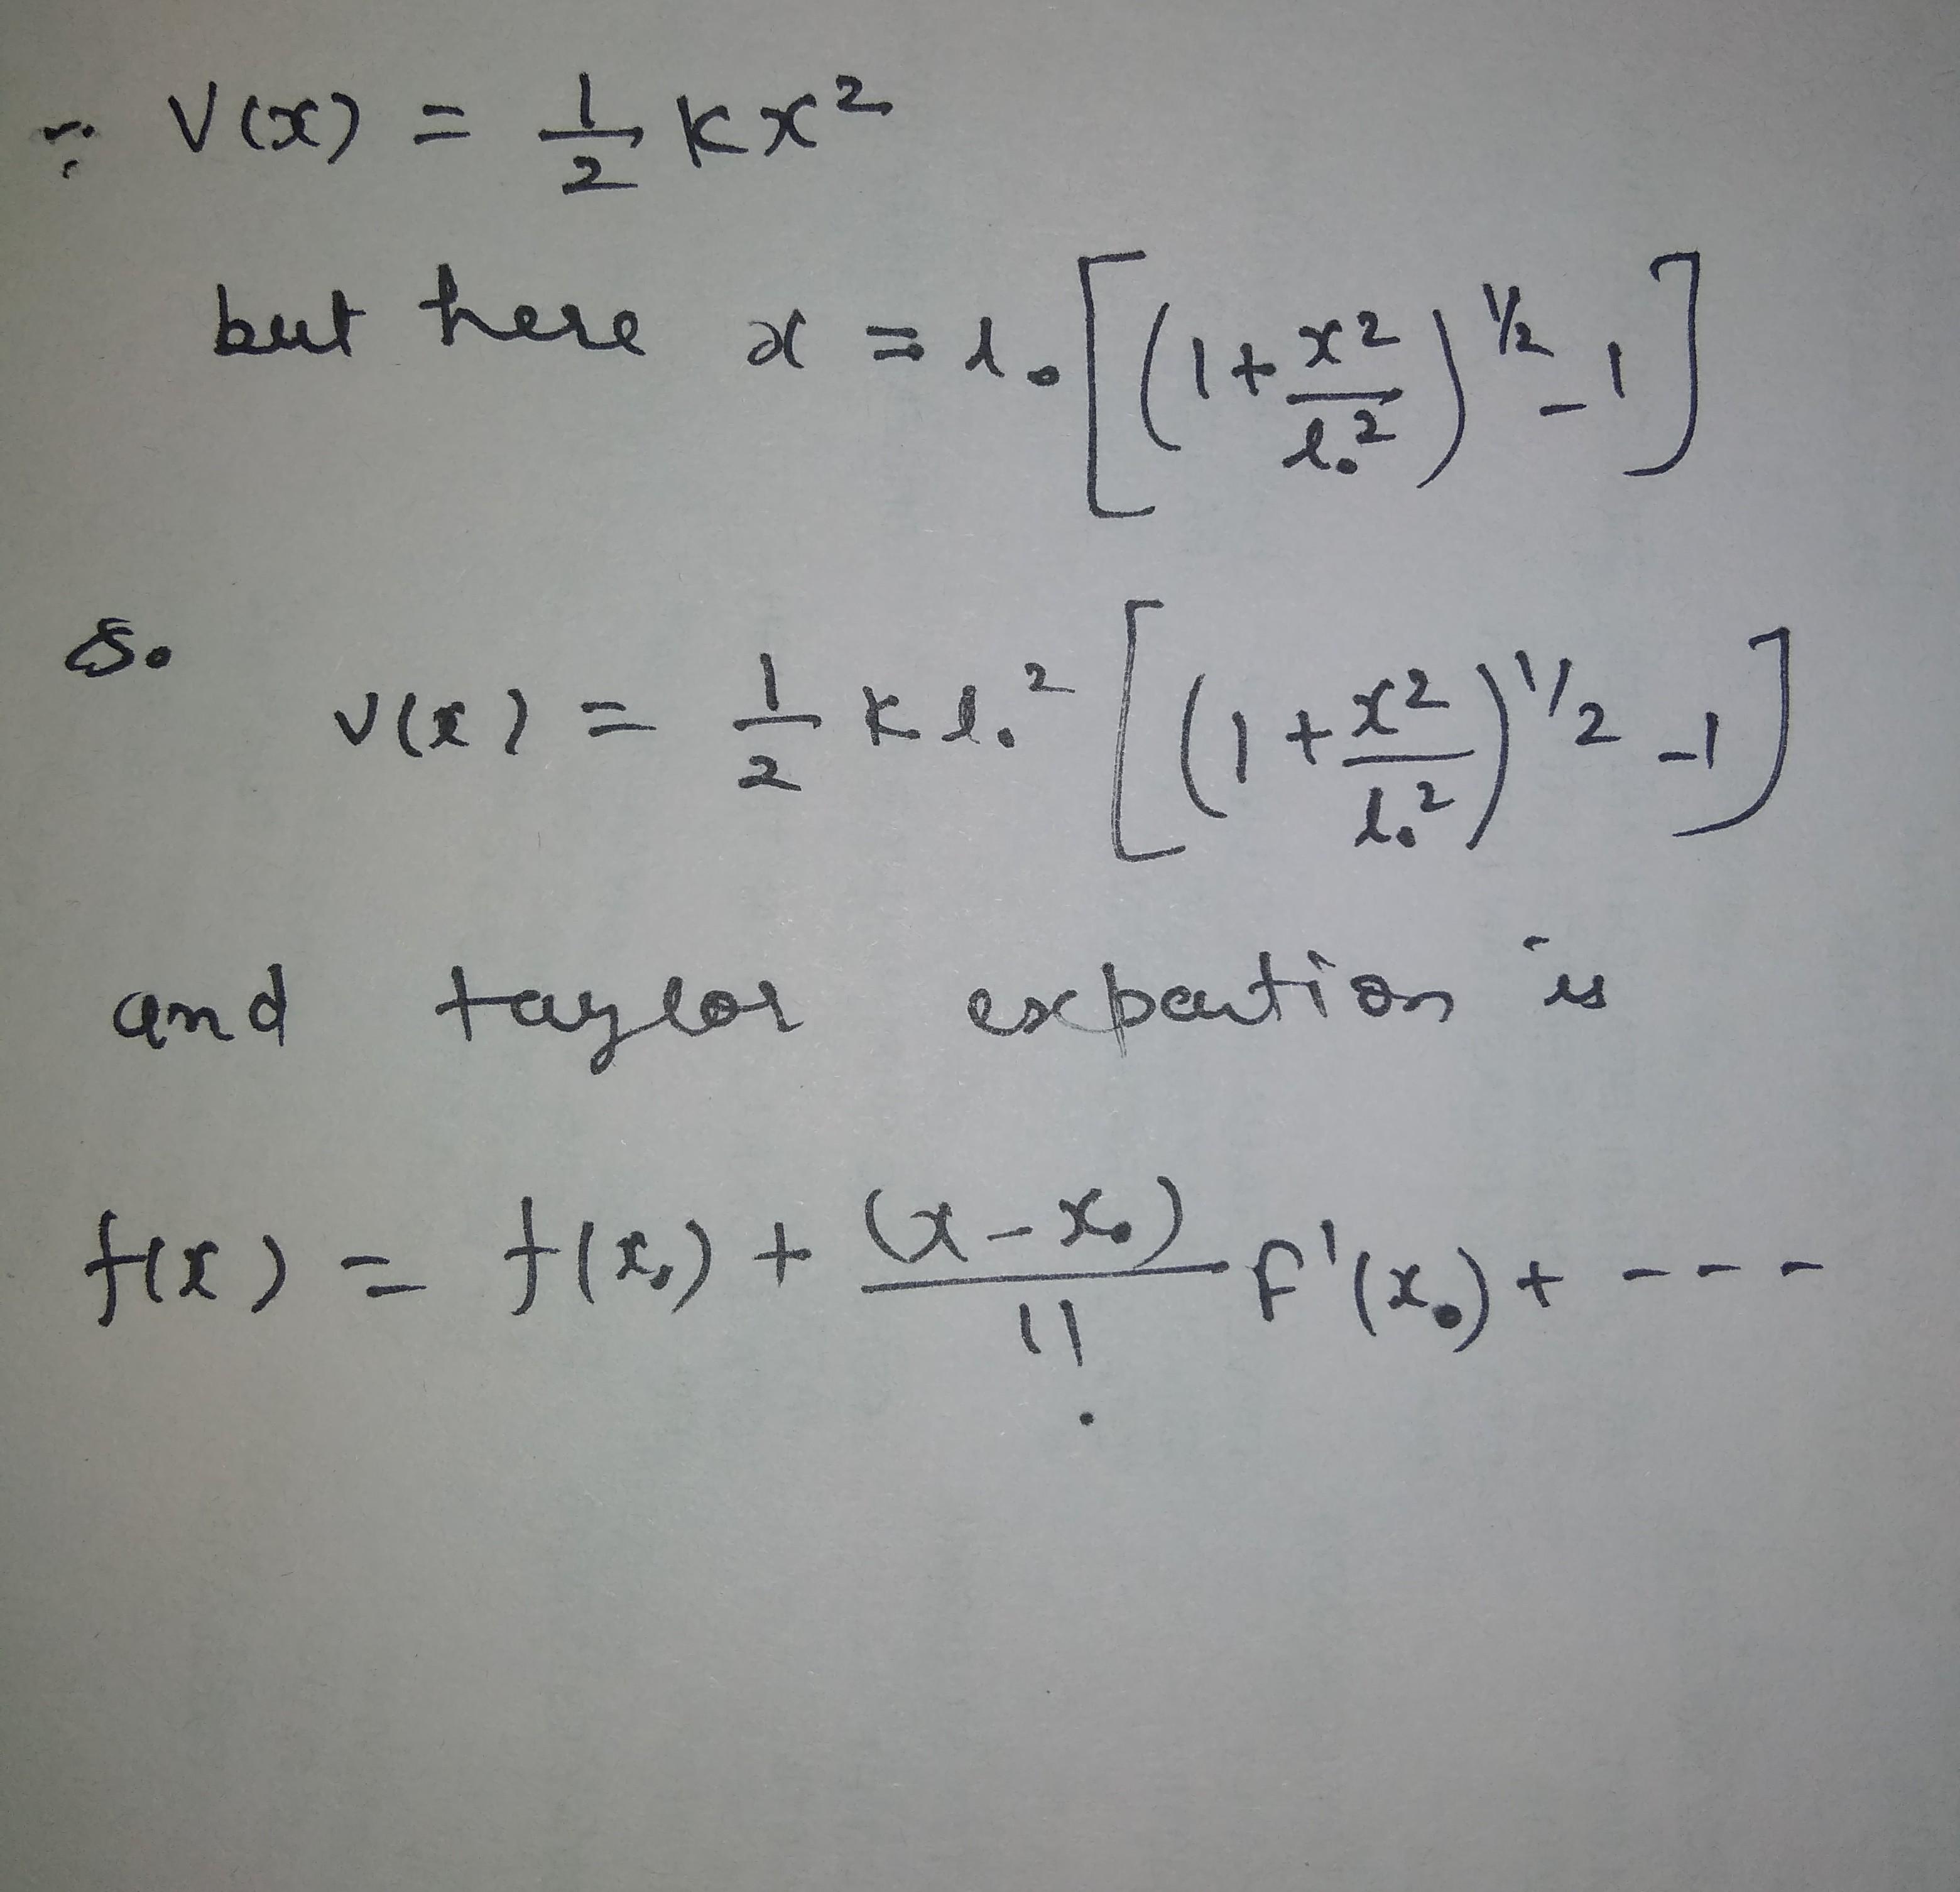 ∵ V(x) = 1/2 Kx²
but here x = l₀[(1+x²/l₀²)^1/2 -1]
So
V(x) = 1/2 K l₀² [(1+x²/l₀²)^1/2 -1]
and taylor expantion is
f(x) = f(x₀) + (x-x₀)/1! f'(x₀) + ----